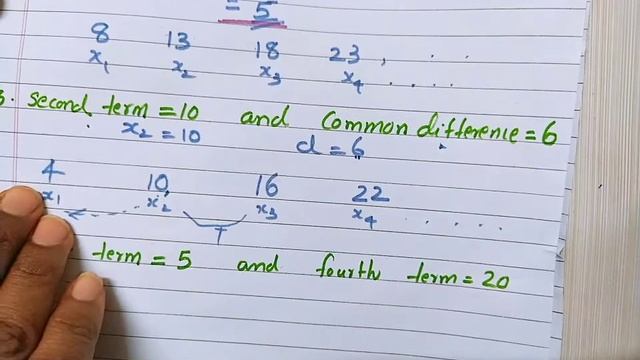 = 5
8 13 18 23 , . .
x₁ x₂ x₃ x₄ . . . .
3. Second term = 10 and Common difference = 6
x₂ = 10 d = 6
4 10 16 22
x₁ x₂ x₃ x₄ . . . . .
term = 5 and fourth term = 20